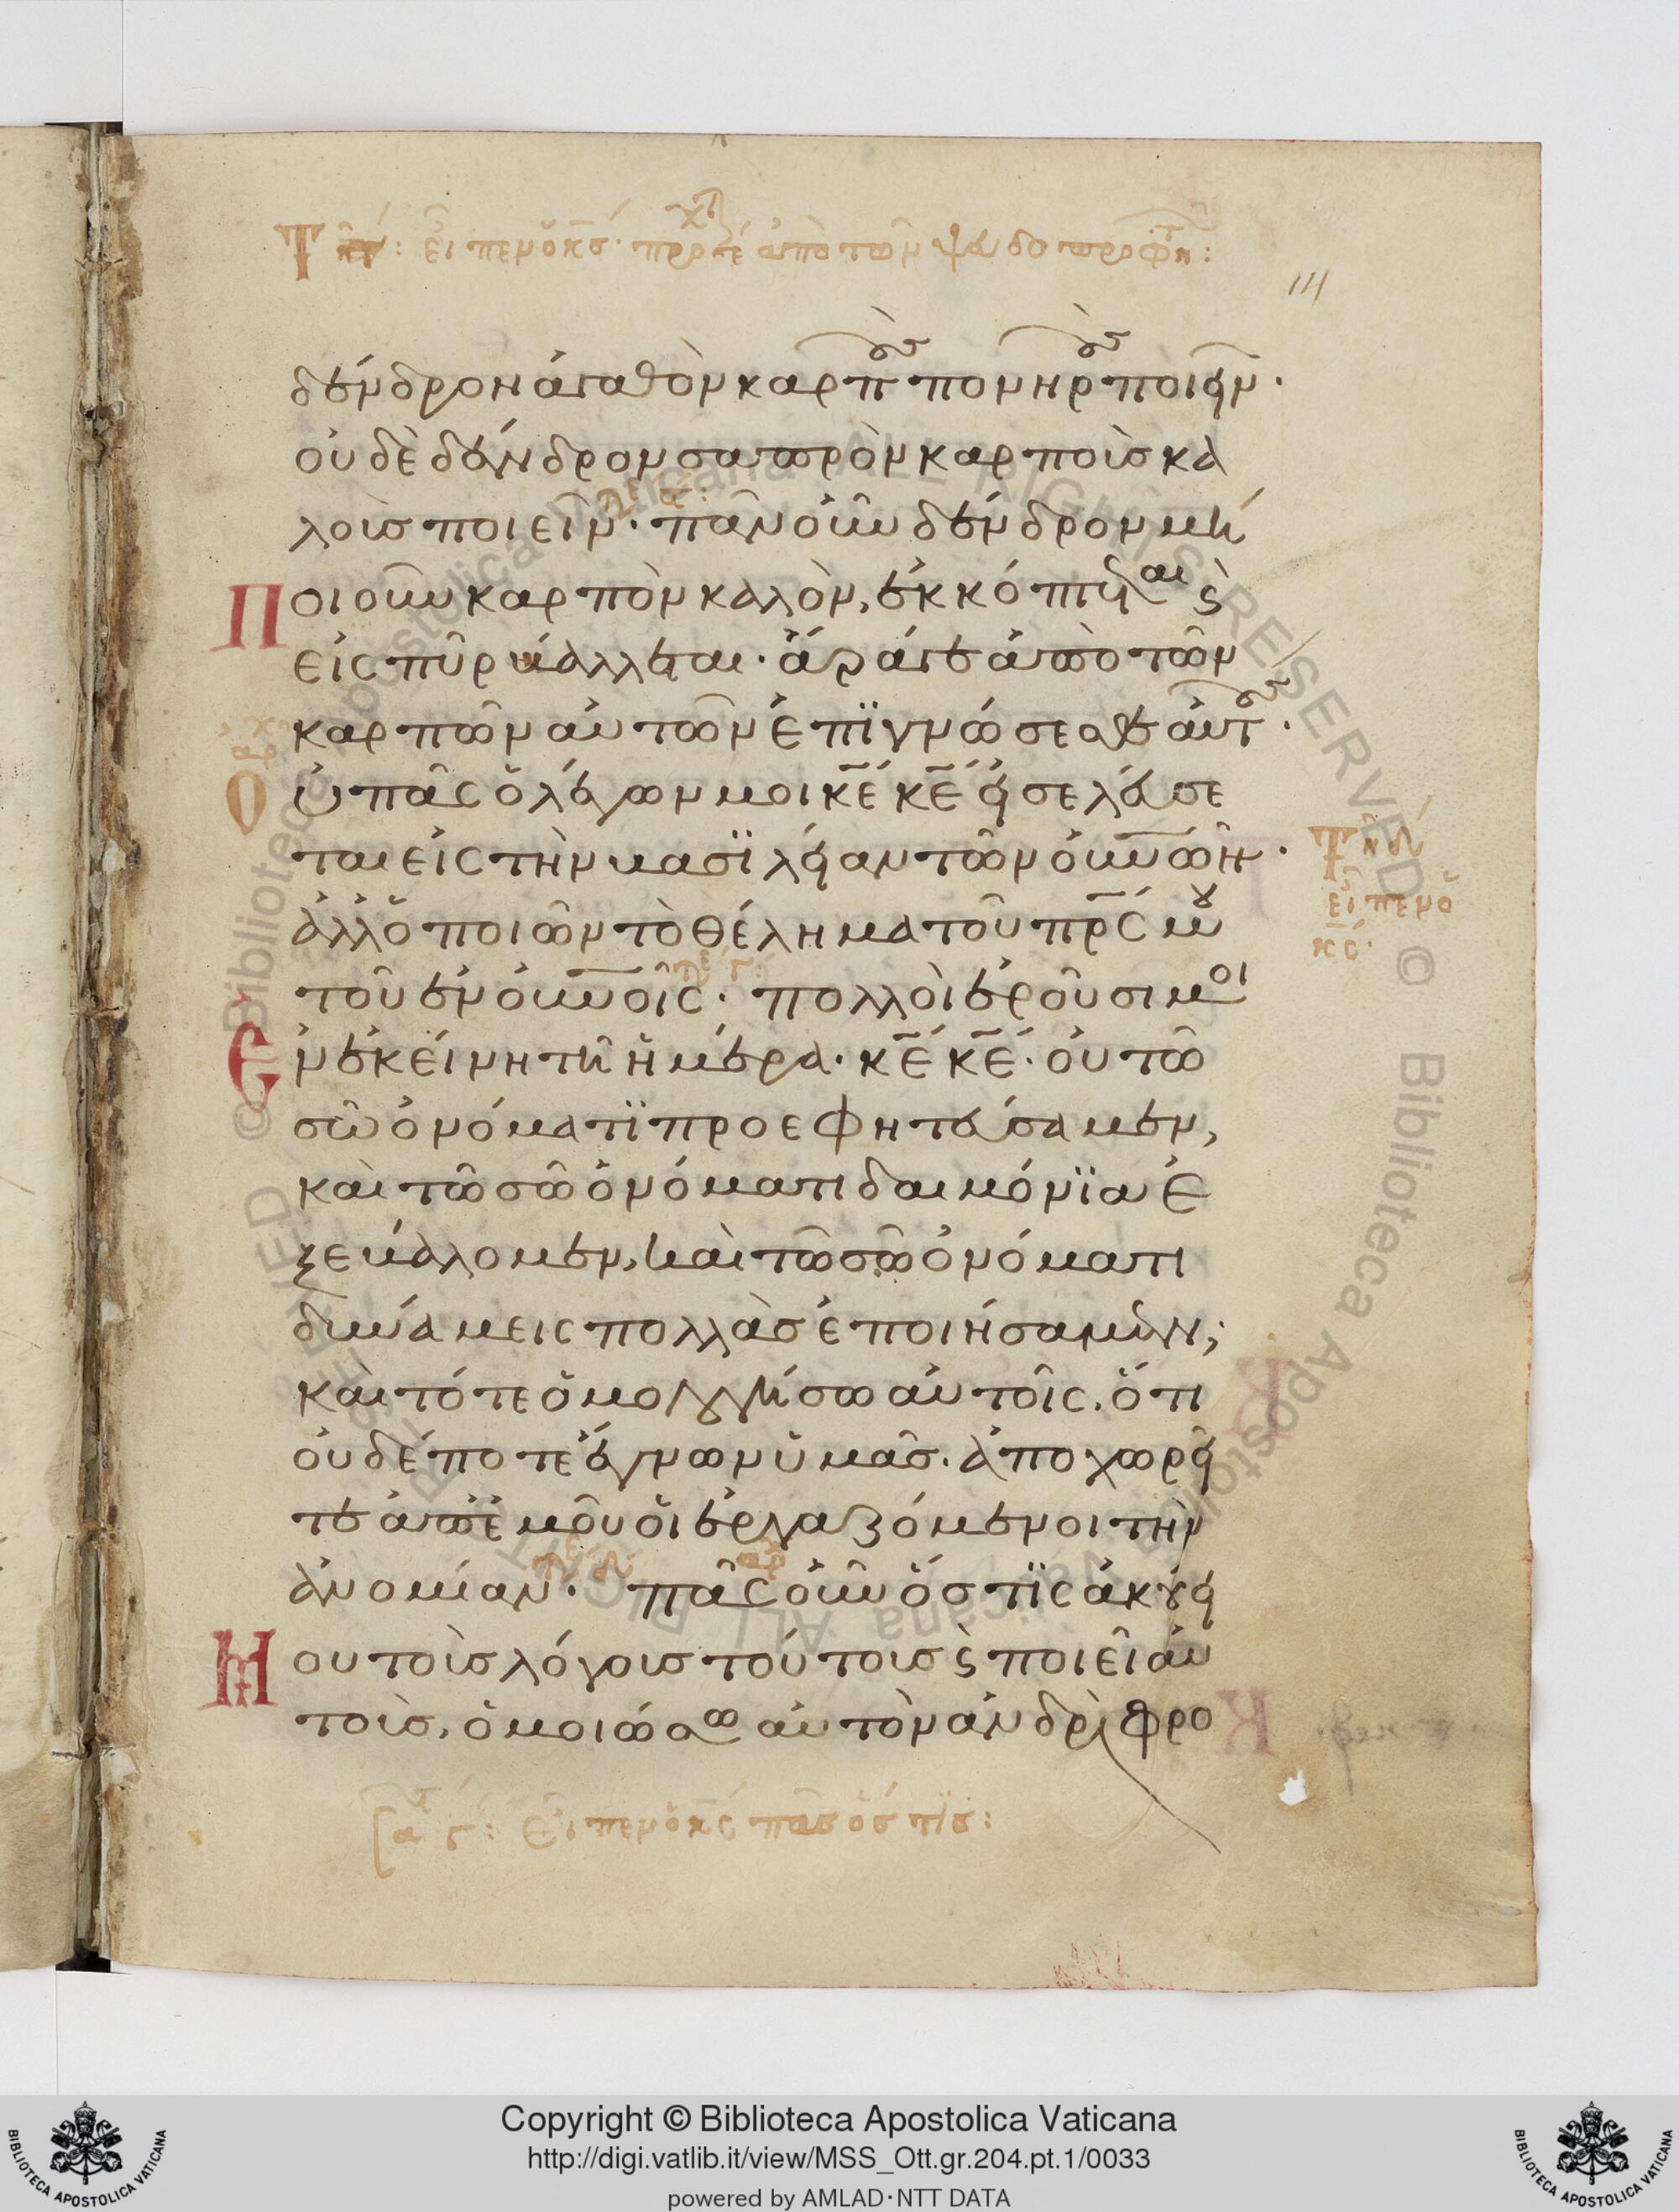 δένδρον ἀγαθὸν καρπ(οὺς) πονηρ(οὺς) ποιεῖν·
οὐδὲ δένδρον σαπρὸν καρποὺς κα
λοὺς ποιεῖν· πᾶν οὖν δένδρον μὴ
ποιοῦν καρπὸν καλὸν, ἐκκόπτεται ϛ
εἰς πῦρ βάλλεται· ἄρά γε ἀπὸ τῶν
καρπῶν αὐτῶν ἐπϊγνώσεσθε αὐτ(οὺς)·
Οὐ πᾶς ὁ λέγων μοι κ̅ε̅ κ̅ε̅ εἰσελεύσε
ται εἰς τὴν βασϊλείαν τῶν ου̅νων·
ἀλλ' ὁ ποιῶν τὸ θέλημα τοῦ πρ̅ς μου
τοῦ ἐν ου̅νοις· πολλοὶ ἐροῦσι μοι
ἐν ἐκείνη τῆ ἡμέρα· κ̅ε̅ κ̅ε̅· οὐ τῶ
σῶ ὀνόματϊ προεφητεύσαμεν,
καὶ τῶ σῶ ὀνόματι δαιμόνϊα ἐ
ξεβάλομεν, καὶ τῶ σῶ ὀνόματι
δυνάμεις πολλὰς ἐποιήσαμεν;
καὶ τότε ὁμολογήσω αὐτοῖς, ὅτι
οὐδέποτε ἔγνων ὑμᾶς· ἀποχωρεῖ
τε ἀπ' ἐμοῦ οἱ ἐργαζόμενοι τὴν
ἀνομίαν· πᾶς οὖν ὅστϊς ἀκούει
μου τοὺς λόγους τούτους ϛ ποιεῖ αὐ
τοὺς, ὁμοιώσω αὐτὸν ἀνδρὶ φρο
εἶπεν ὁ κ̅ς̅
εἶπεν ὁ κ̅ς̅ πᾶς ὅστϊς:
Copyright © Biblioteca Apostolica Vaticana
http://digi.vatlib.it/view/MSS_Ott.gr.204.pt.1/0033
powered by AMLAD·NTT DATA